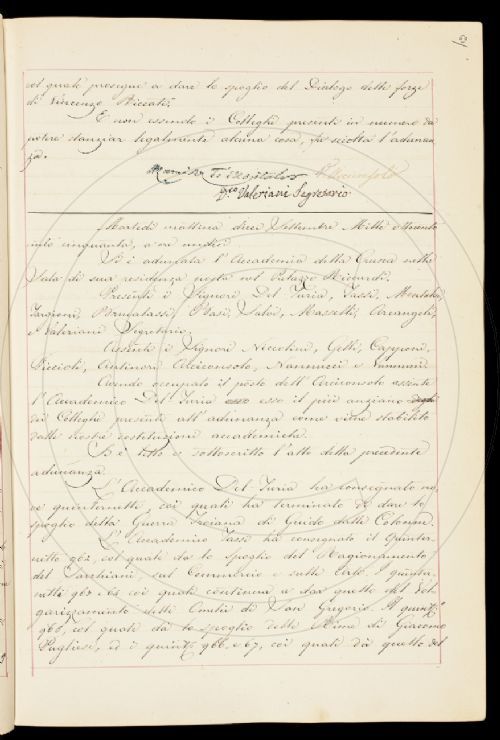 col quale prosegue a dare lo spoglio del Dialogo delle forze
di Vincenzo Riccati.
E non essendo i Colleghi presenti in numero da
potere stanziar legalmente alcuna cosa, fu sciolta l'adunan
za.
Valeriani Segretario
Martedì mattina dieci Settembre Mille ottocento
cinquanta, a ore undici.
Si è adunata l'Accademia della Crusca nella
Sala di sua residenza posta nel Palazzo Riccardi.
Presenti i Signori Del Furia, Tassi,
Targioni, Masselli, Arcangeli,
e Valeriani Segretario.
Assenti i Signori Niccolini, Gelli, Capponi,
Arciconsolo, Nannucci e
Avendo occupato il posto dell'Arciconsolo assente
l'Accademico Del Furia esso il più anziano degli
dei Colleghi presenti all'adunanza come viene stabilito
dalle nostre costituzioni accademiche.
Si è letto e sottoscritto l'atto della precedente
adunanza.
L'Accademico Del Furia ha consegnato no
ve quinternetti, coi quali ha terminato di dare lo
spoglio della Guerra Troiana di Guido dalle Colonne.
L'Accademico Tassi ha consegnato il Quinter-
netto 962, col quale dà lo spoglio del Ragionamento
del sul Commercio e sulle
963 e 64 coi quali continua a dar quello del Vol-
garizzamento delle Omelie di San Gregorio. Il
965, col quale dà lo spoglio delle Rime di Giacomo
Pugliese, ed i 966 e 67, coi quali dà quello del